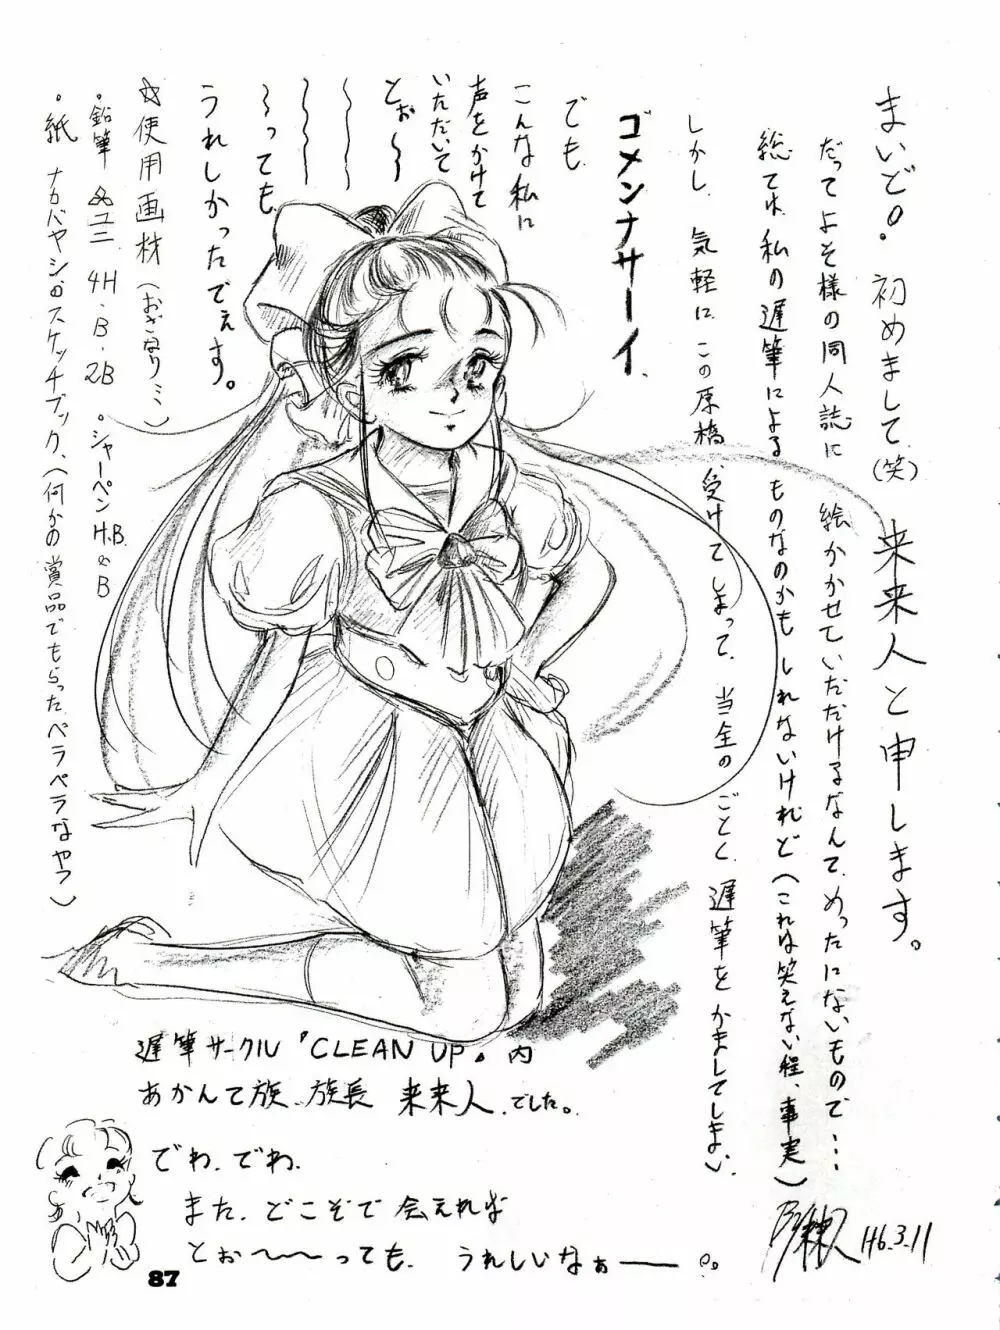 まいど。初めまして(笑) 来来人と申します。
だってよそ様の同人誌に 絵かかせていただけるなんて、めったにないもので…
総ては、私の遅筆によるものなのかもしれないけれど(これは笑えない程、事実)
しかし、気軽に、この原稿、受けてしまって、当全のごとく、遅筆をかましてしまい、
ゴメンナサーイ、
でも
こんな私に
声をかけて
いただいて
とぉ〜
〜っても、
うれしかったでぇす。
☆使用画材(おざなり…)
・鉛筆 ユニ 4H・B・2B ・シャーペン H.B. & B
・紙 ナカバヤシのスケッチブック、(何かの賞品でもらったペラペラなやつ)
遅筆サークル『CLEAN UP』内
あかんて族、族長 来来人、でした。
でわ、でわ、
また、どこぞで会えれば
とぉ〜〜っても、うれしいなぁ——。
H6.3.11
87